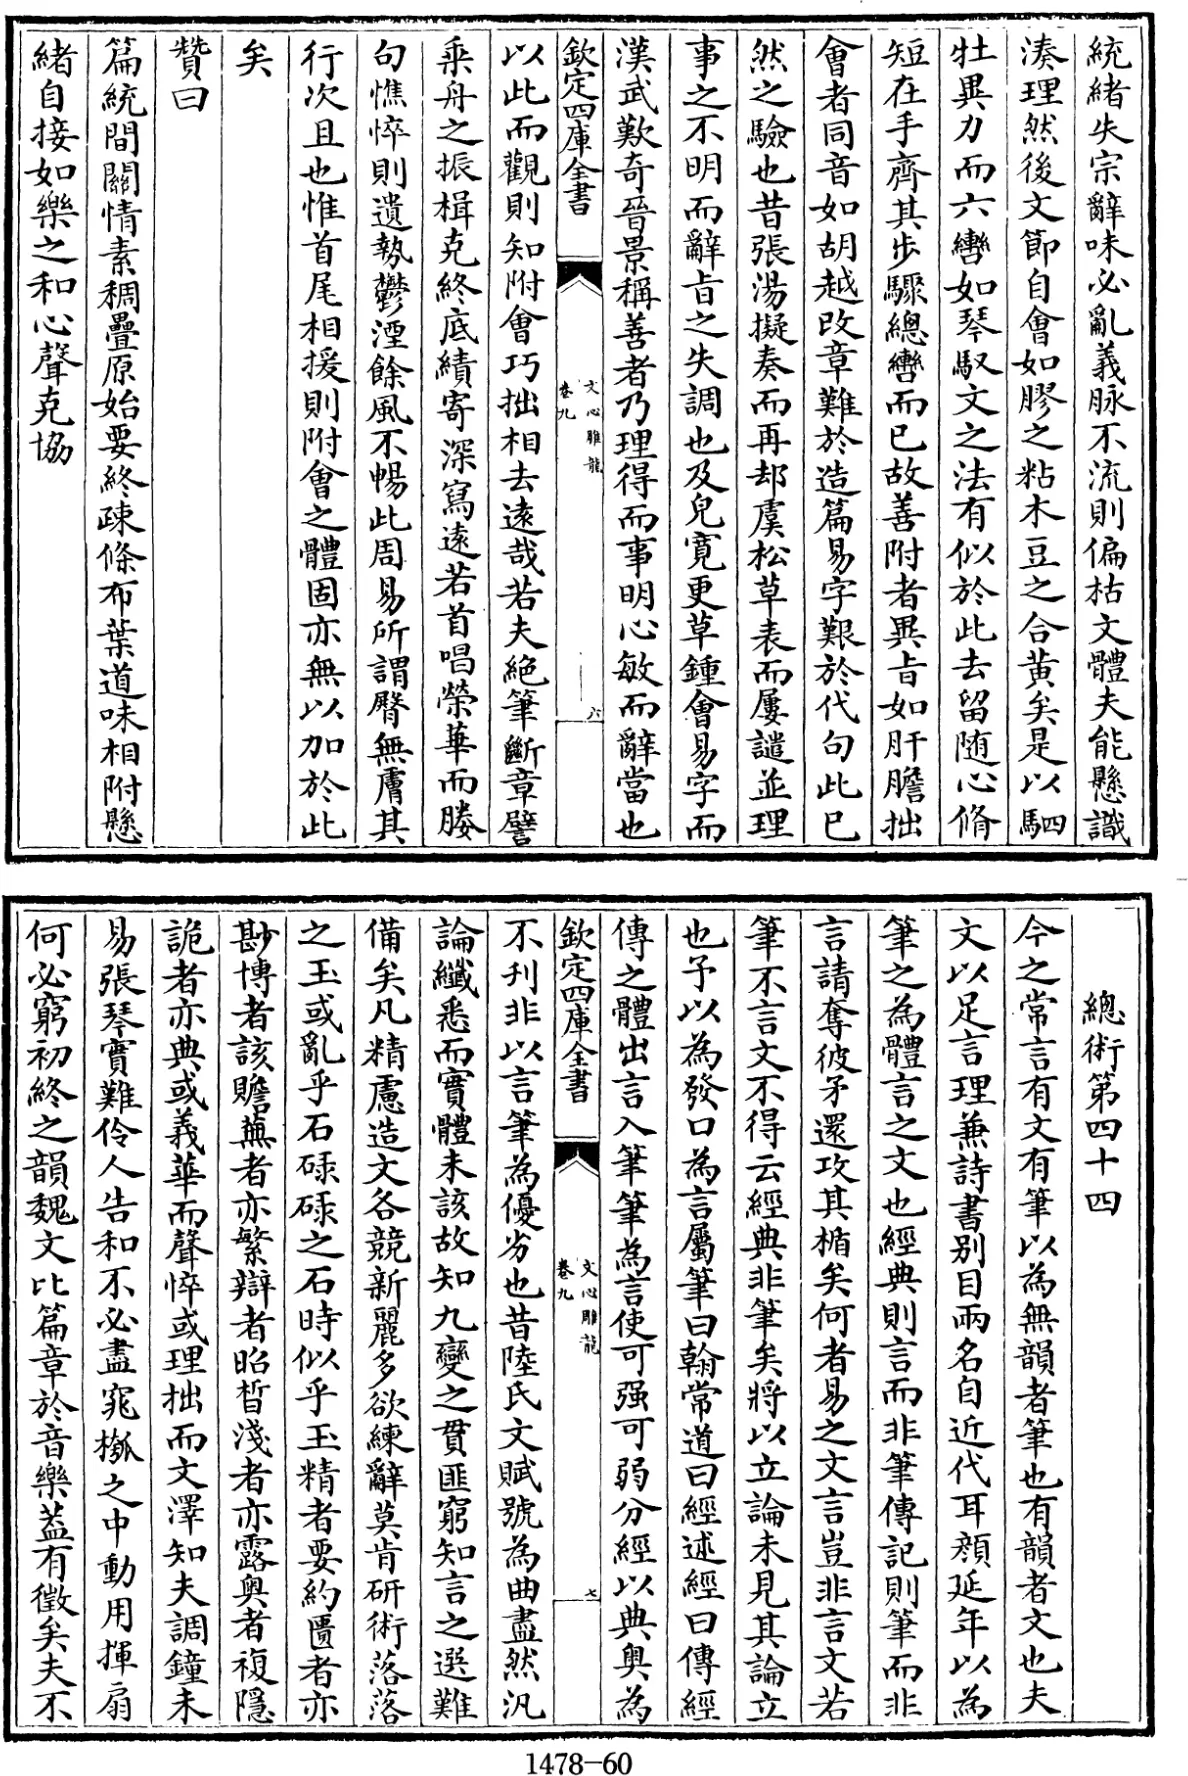 統緒失宗辭味必亂義脉不流則偏枯文體夫能懸識
湊理然後文節自會如膠之粘木豆之合黄矣是以駟
牡異力而六轡如琴馭文之法有似於此去留随心脩
短在手齊其步驟總轡而已故善附者異㫖如肝膽拙
會者同音如胡越改章難於造篇易字艱於代句此已
然之驗也昔張湯擬奏而再却虞松草表而屢譴並理
事之不明而辭㫖之失調也及兒寛更草鍾會易字而
漢武歎奇晉景稱善者乃理得而事明心敏而辭當也
欽定四庫全書
文心雕龍
卷九
六
以此而觀則知附會巧拙相去逺哉若夫絶筆斷章譬
乘舟之振楫克終底績寄深寫逺若首唱榮華而媵
句憔悴則遺勢鬱湮餘風不暢此周易所謂臀無膚其
行次且也惟首尾相援則附會之體固亦無以加於此
矣
贊曰
篇統間關情素稠疊原始要終疎條布葉道味相附懸
緒自接如樂之和心聲克協
總術第四十四
今之常言有文有筆以為無韻者筆也有韻者文也夫
文以足言理兼詩書别目兩名自近代耳顔延年以為
筆之為體言之文也經典則言而非筆傳記則筆而非
言請奪彼矛還攻其楯矣何者易之文言豈非言文若
筆不言文不得云經典非筆矣將以立論未見其論立
也予以為發口為言屬筆曰翰常道曰經述經曰傳經
傳之體出言入筆筆為言使可强可弱分經以典奥為
欽定四庫全書
文心雕龍
卷九
七
不刋非以言筆為優劣也昔陸氏文賦號為曲盡然汎
論纎悉而實體未該故知九變之貫匪窮知言之選難
備矣凡精慮造文各競新麗多欲練辭莫肯研術落落
之玉或亂乎石碌碌之石時似乎玉精者要約匱者亦
尠博者該贍蕪者亦繁辯者昭晳淺者亦露奥者複隱
詭者亦典或義華而聲悴或理拙而文澤知夫調鐘未
易張琴實難伶人告和不必盡窕槬之中動用揮扇
何必窮初終之韻魏文比篇章於音樂葢有徵矣夫不
1478-60